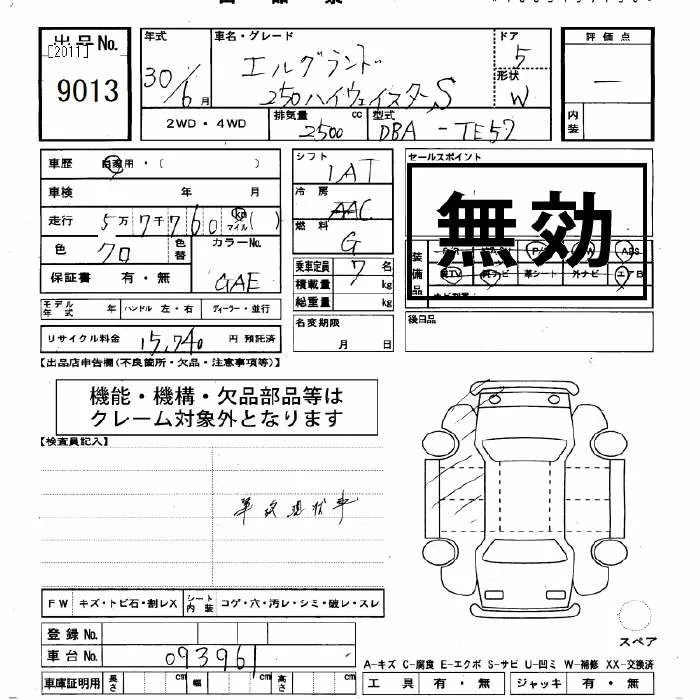 出品No.
[2011]
9013
年式
30/6月
車名・グレード
エルグランド
250ハイウェイスターS
ドア
5
形状
W
評価点
—
内装
2WD・4WD
排気量
2500 cc
型式
DBA - TE52
車歴 自家用・( )
車検 年 月
走行 5万7千760 km マイル ( )
色 クロ 色替
カラーNo.
GAE
保証書 有・無
モデル年式 年 ハンドル 左・右 ディーラー・並行
リサイクル料金 15,740 円 預託済
シフト
IAT
冷房
AAC
燃料
G
乗車定員 7 名
積載量 kg
総重量 kg
名変期限
月 日
セールスポイント
無効
装備品
ABS
TV ナビ 革シート 外ナビ エアB
後日品
【出品店申告欄(不良箇所・欠品・注意事項等)】
機能・機構・欠品部品等は
クレーム対象外となります
【検査員記入】
車現状車
FW キズ・トビ石・割レX シート内装 コゲ・穴・汚レ・シミ・破レ・スレ
登録No.
車台No. 093961
車庫証明用 長さ cm 幅 cm 高さ cm
スペア
A-キズ C-腐食 E-エクボ S-サビ U-凹ミ W-補修 XX-交換済
工具 有・無 ジャッキ 有・無